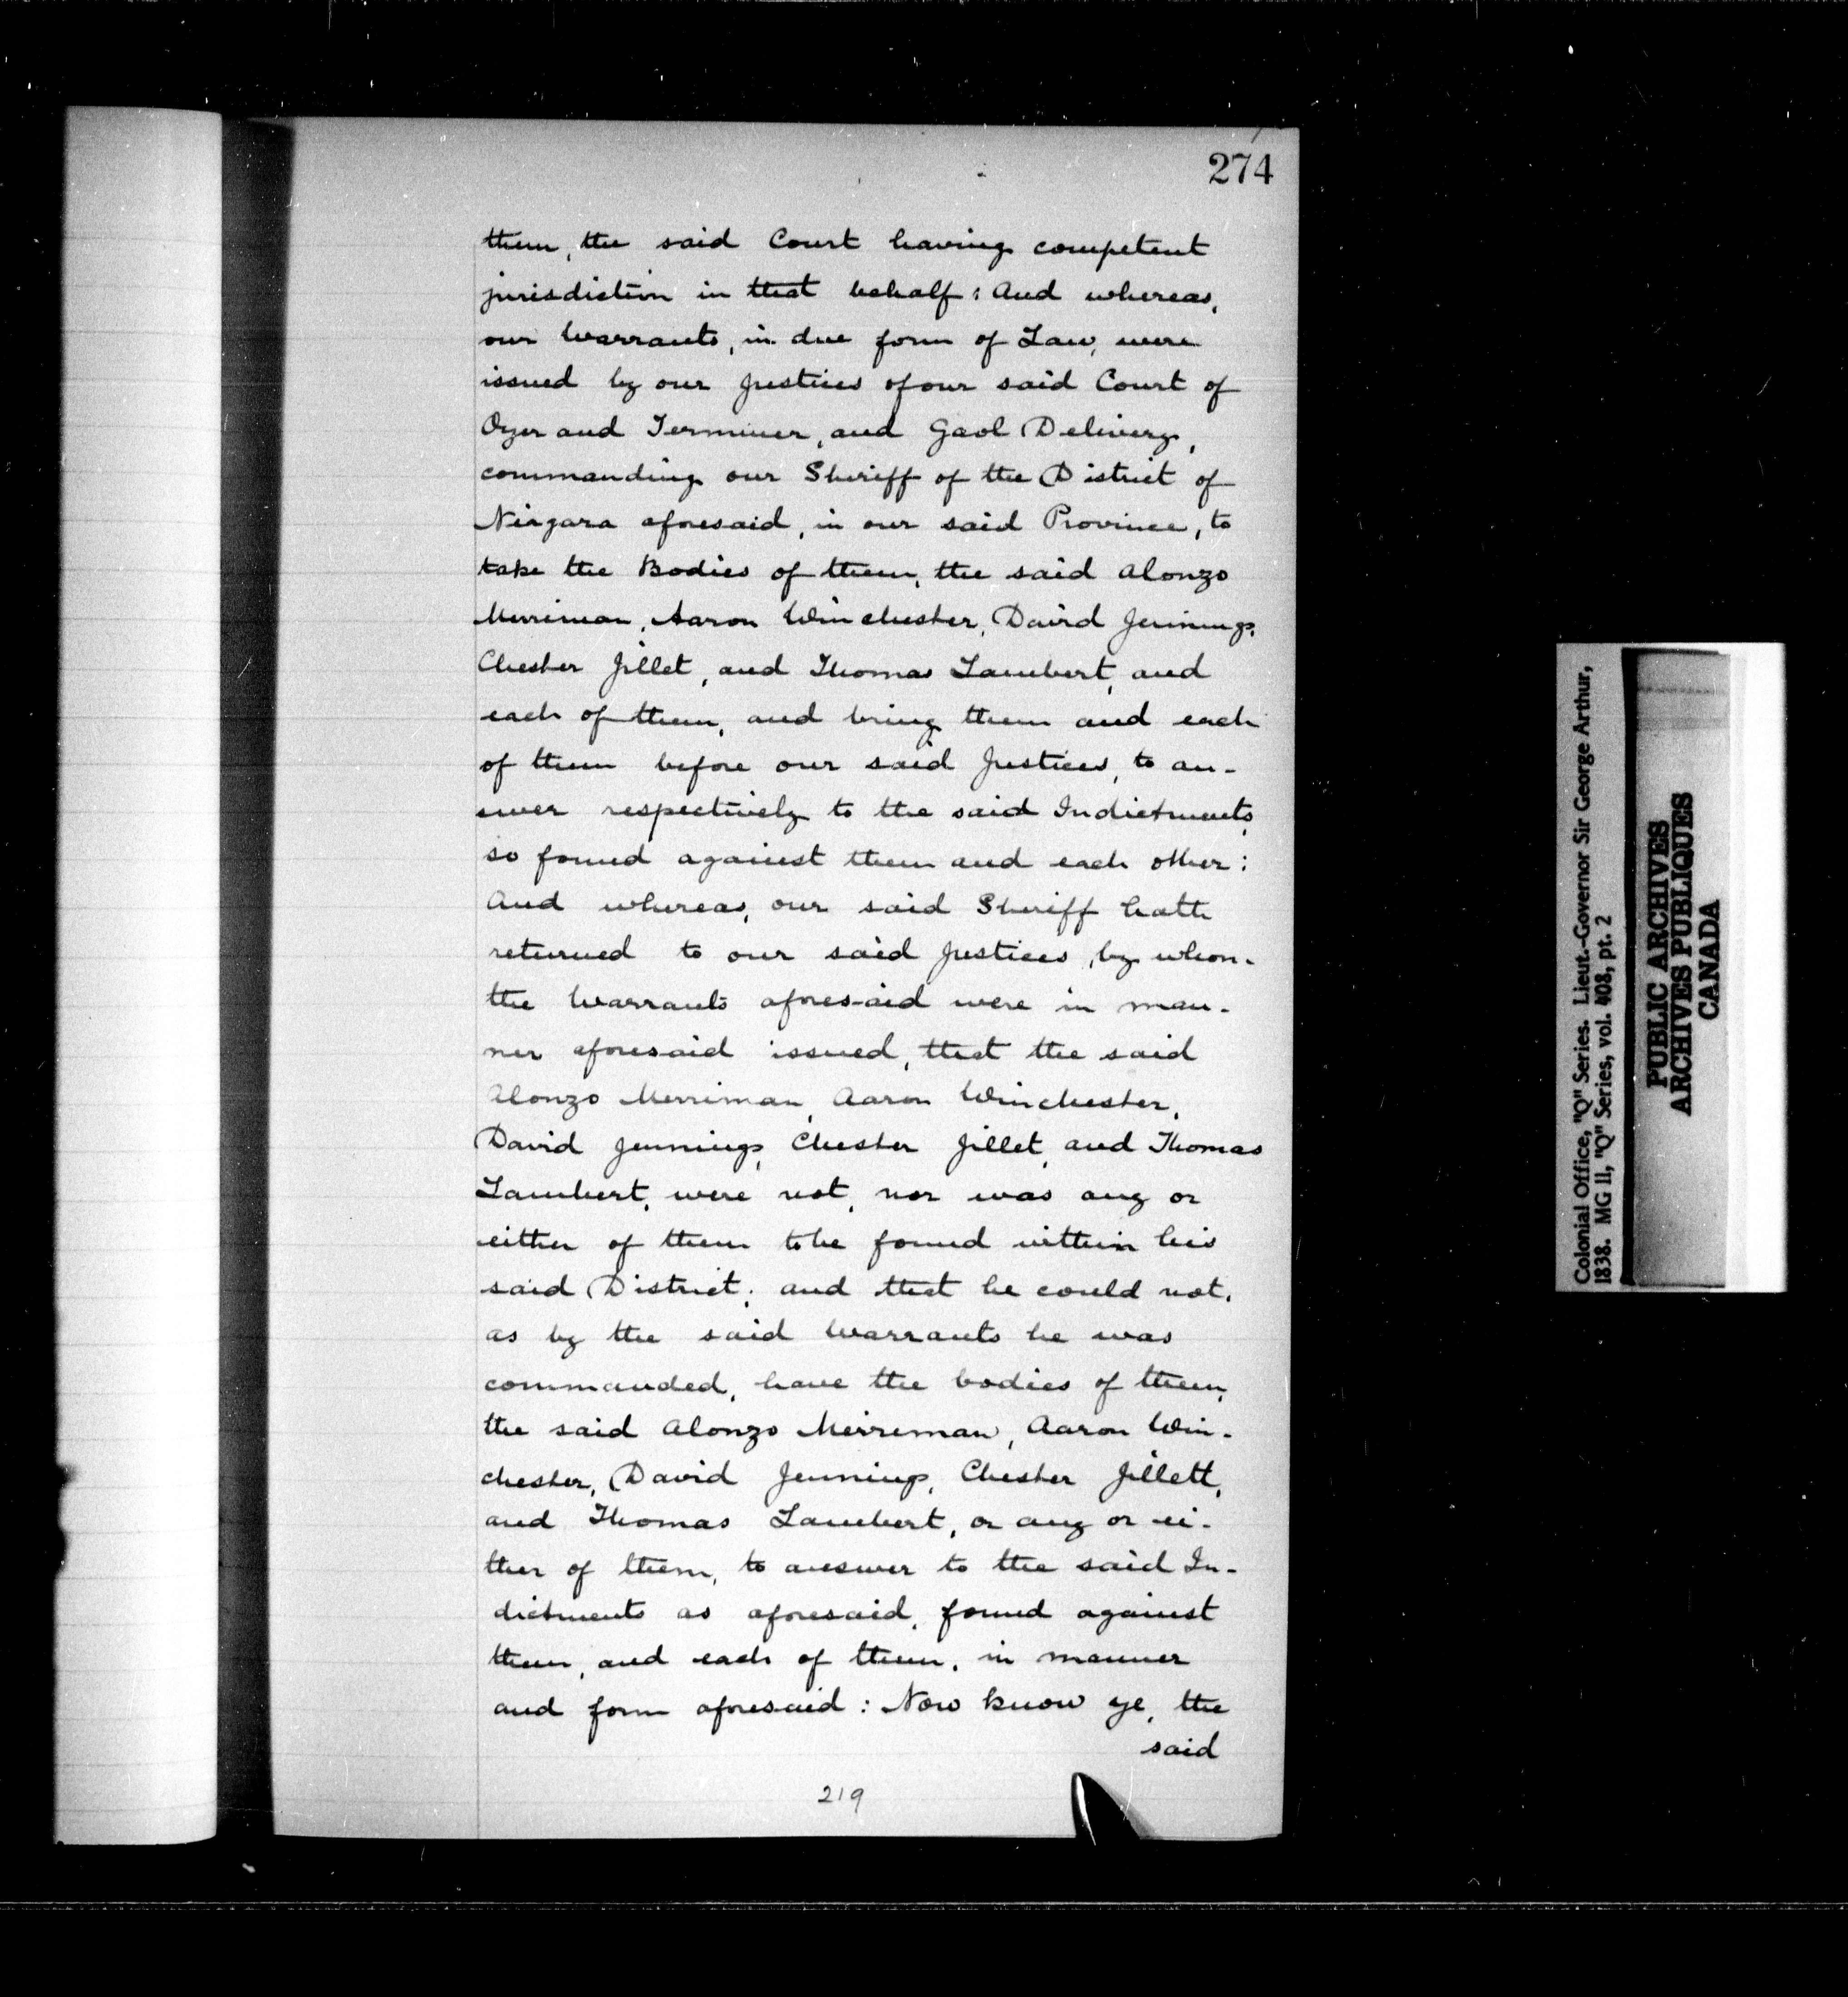 274
them, the said Court having competent
jurisdiction in that behalf: And whereas,
our Warrants, in due form of Law, were
issued by our Justices of our said Court of
Oyer and Terminer, and Gaol Delivery,
commanding our Sheriff of the District of
Niagara aforesaid, in our said Province, to
take the Bodies of them, the said Alonzo
Merriman, Aaron Winchester, David Jennings,
Chester Jillet, and Thomas Lambert, and
each of them, and bring them and each
of them before our said Justices, to an-
swer respectively to the said Indictments,
so found against them and each other:
And whereas, our said Sheriff hath
returned to our said Justices, by whom
the Warrants aforesaid were in man-
ner aforesaid issued, that the said
Alonzo Merriman, Aaron Winchester,
David Jennings, Chester Jillet, and Thomas
Lambert, were not, nor was any or
either of them to be found within his
said District; and that he could not,
as by the said Warrants he was
commanded, have the bodies of them,
the said Alonzo Merriman, Aaron Win-
chester, David Jennings, Chester Jillett,
and Thomas Lambert, or any or ei-
ther of them, to answer to the said In-
dictments as aforesaid, found against
them, and each of them, in manner
and form aforesaid: Now know ye, the
said
219
Colonial Office, "Q" Series. Lieut.-Governor Sir George Arthur,
1838. MG 11, "Q" Series, vol. 408, pt. 2
PUBLIC ARCHIVES
ARCHIVES PUBLIQUES
CANADA